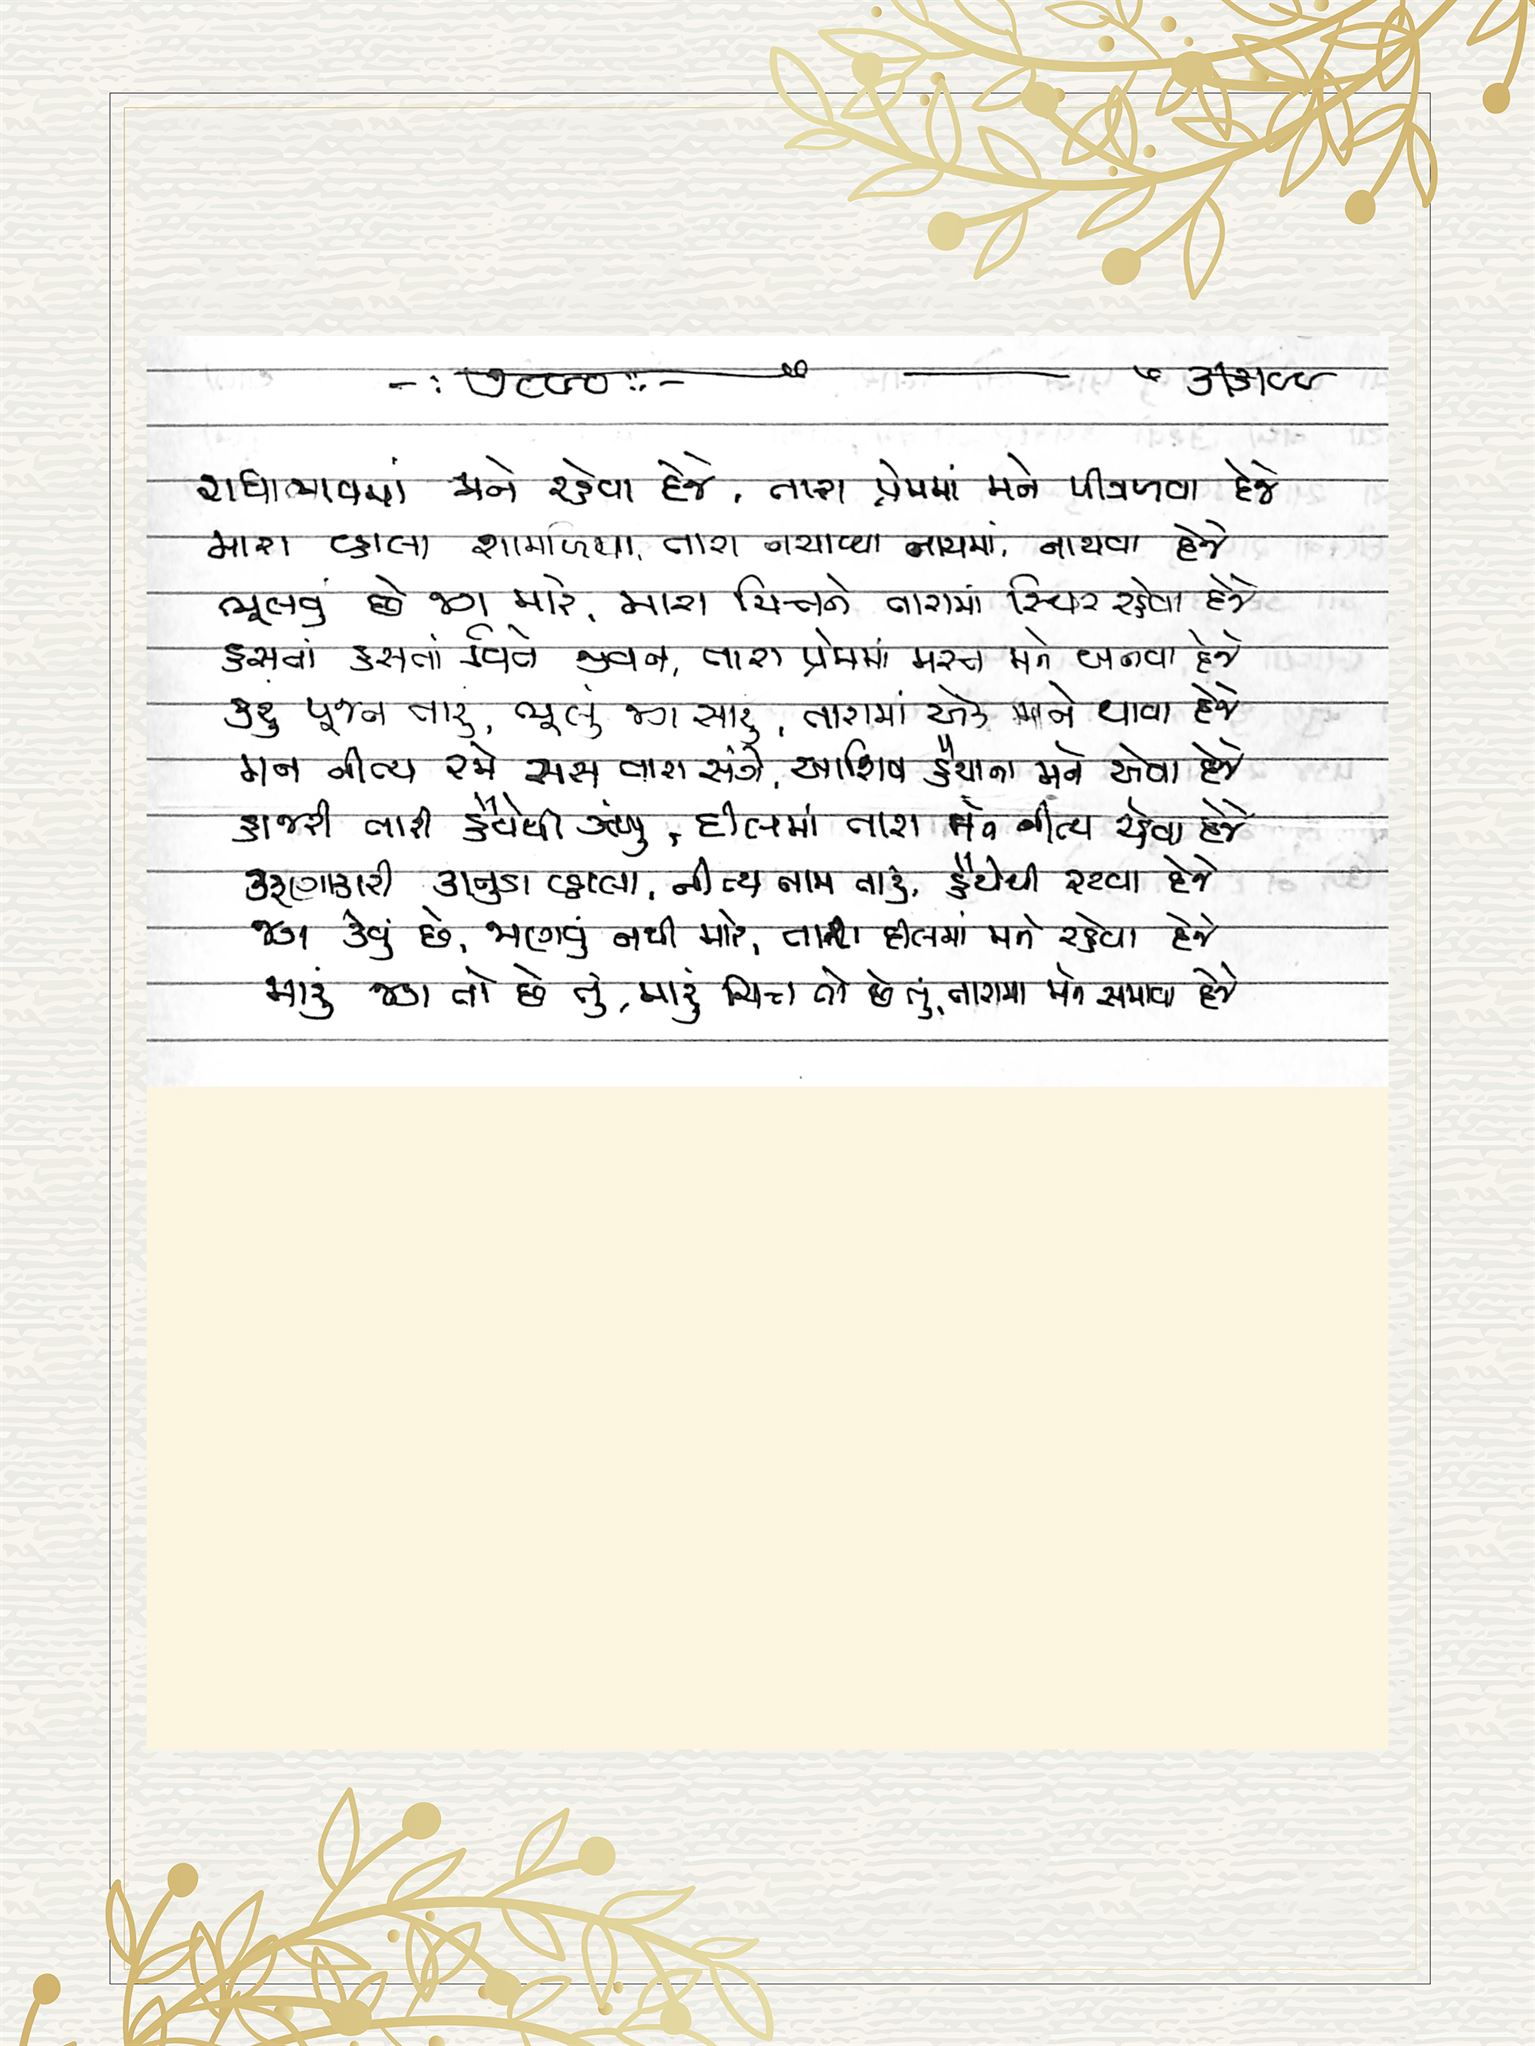 રાધાભાવમાં મને રહેવા દેજે, તારા પ્રેમમાં મને પીગળવા દેજે
મારા વ્હાલા શામળિયા, તારા નચાવ્યા નાચમાં, નાચવા દેજે
ભૂલવું છે જગ મારે, મારા ચિત્તને તારામાં સ્થિર રહેવા દેજે
હસતાં હસતાં વિતે જીવન, તારા પ્રેમમાં મસ્ત મને બનવા દેજે
કરું પૂજન તારું, ભૂલું જગ સારું, તારામાં એક મને થાવા દેજે
મન નીત્ય રમે રાસ તારા સંગે, આશિષ હૈયાના મને એવા દેજે
હાજરી તારી હૈયેથી ઝંખુ, દીલમાં તારા મને નીત્ય રહેવા દેજે
કરુણાકારી કાનુડા વ્હાલા, નીત્ય નામ તારું, હૈયેથી રટવા દેજે
જગ કેવું છે, જાણવું નથી મારે, તારા દીલમાં મને રહેવા દેજે
મારું જગ તો છે તું, મારું ચિત્ત તો છે તું, તારામાં મને સમાવા દેજે